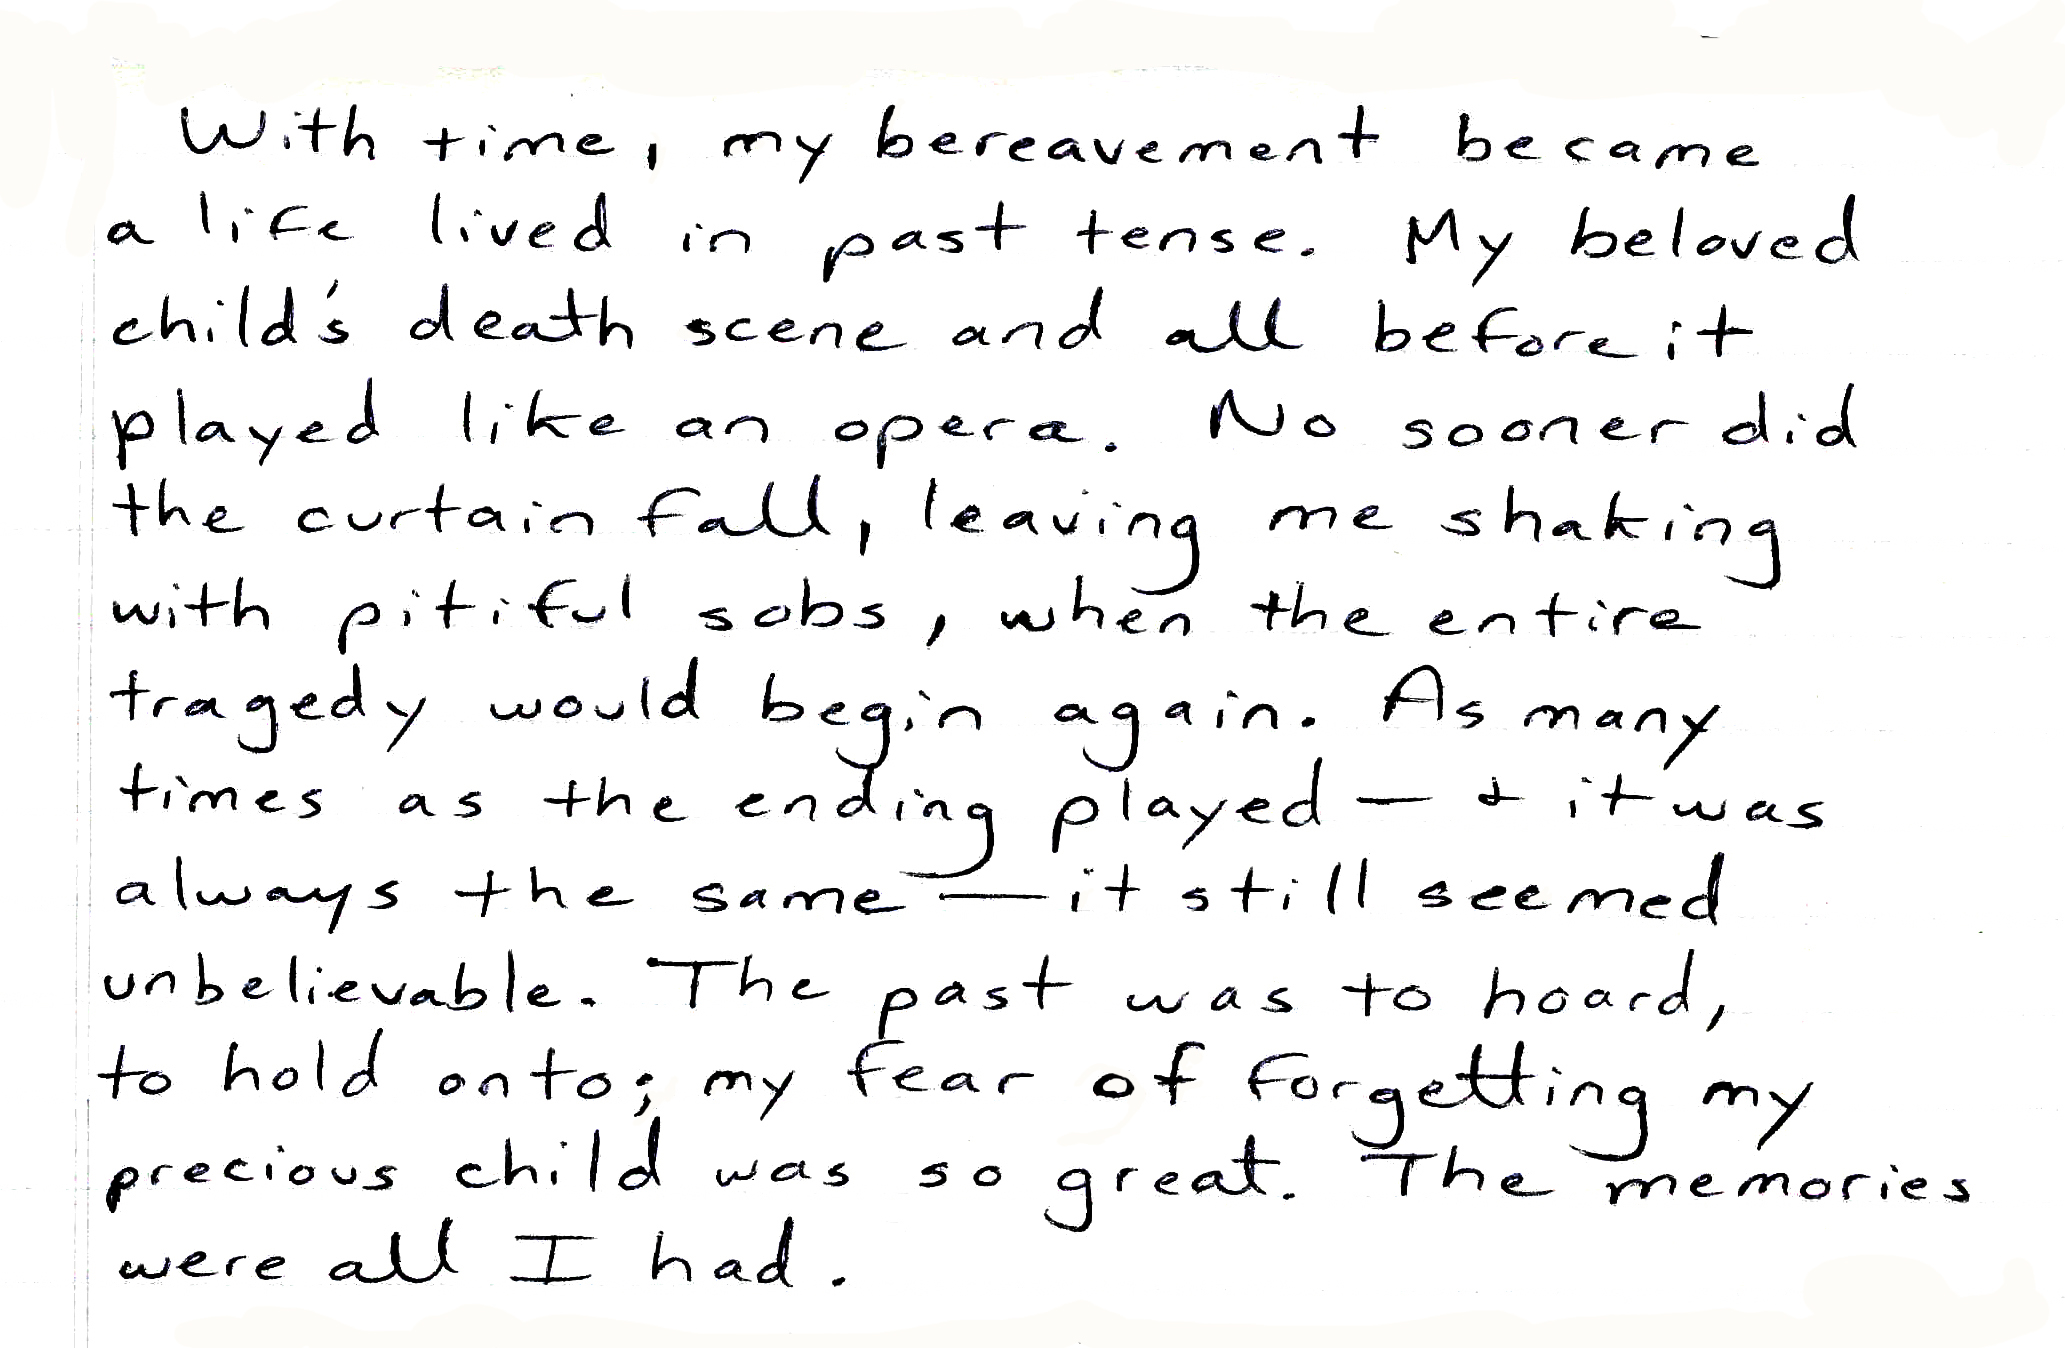 With time, my bereavement became
a life lived in past tense. My beloved
child's death scene and all before it
played like an opera. No sooner did
the curtain fall, leaving me shaking
with pitiful sobs, when the entire
tragedy would begin again. As many
times as the ending played — & it was
always the same — it still seemed
unbelievable. The past was to hoard,
to hold onto; my fear of forgetting my
precious child was so great. The memories
were all I had.